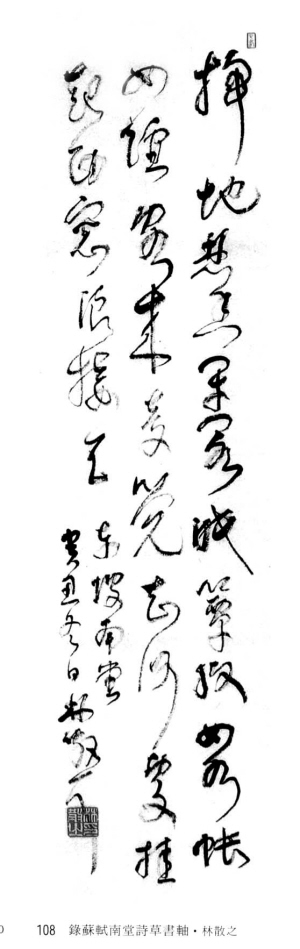 掃地焚香閉閣眠簟紋如水帳
如煙客來夢覺知何處挂
起西窗浪接天
東坡南堂
癸丑冬日林散耳
108 錄蘇軾南堂詩草書軸・林散之